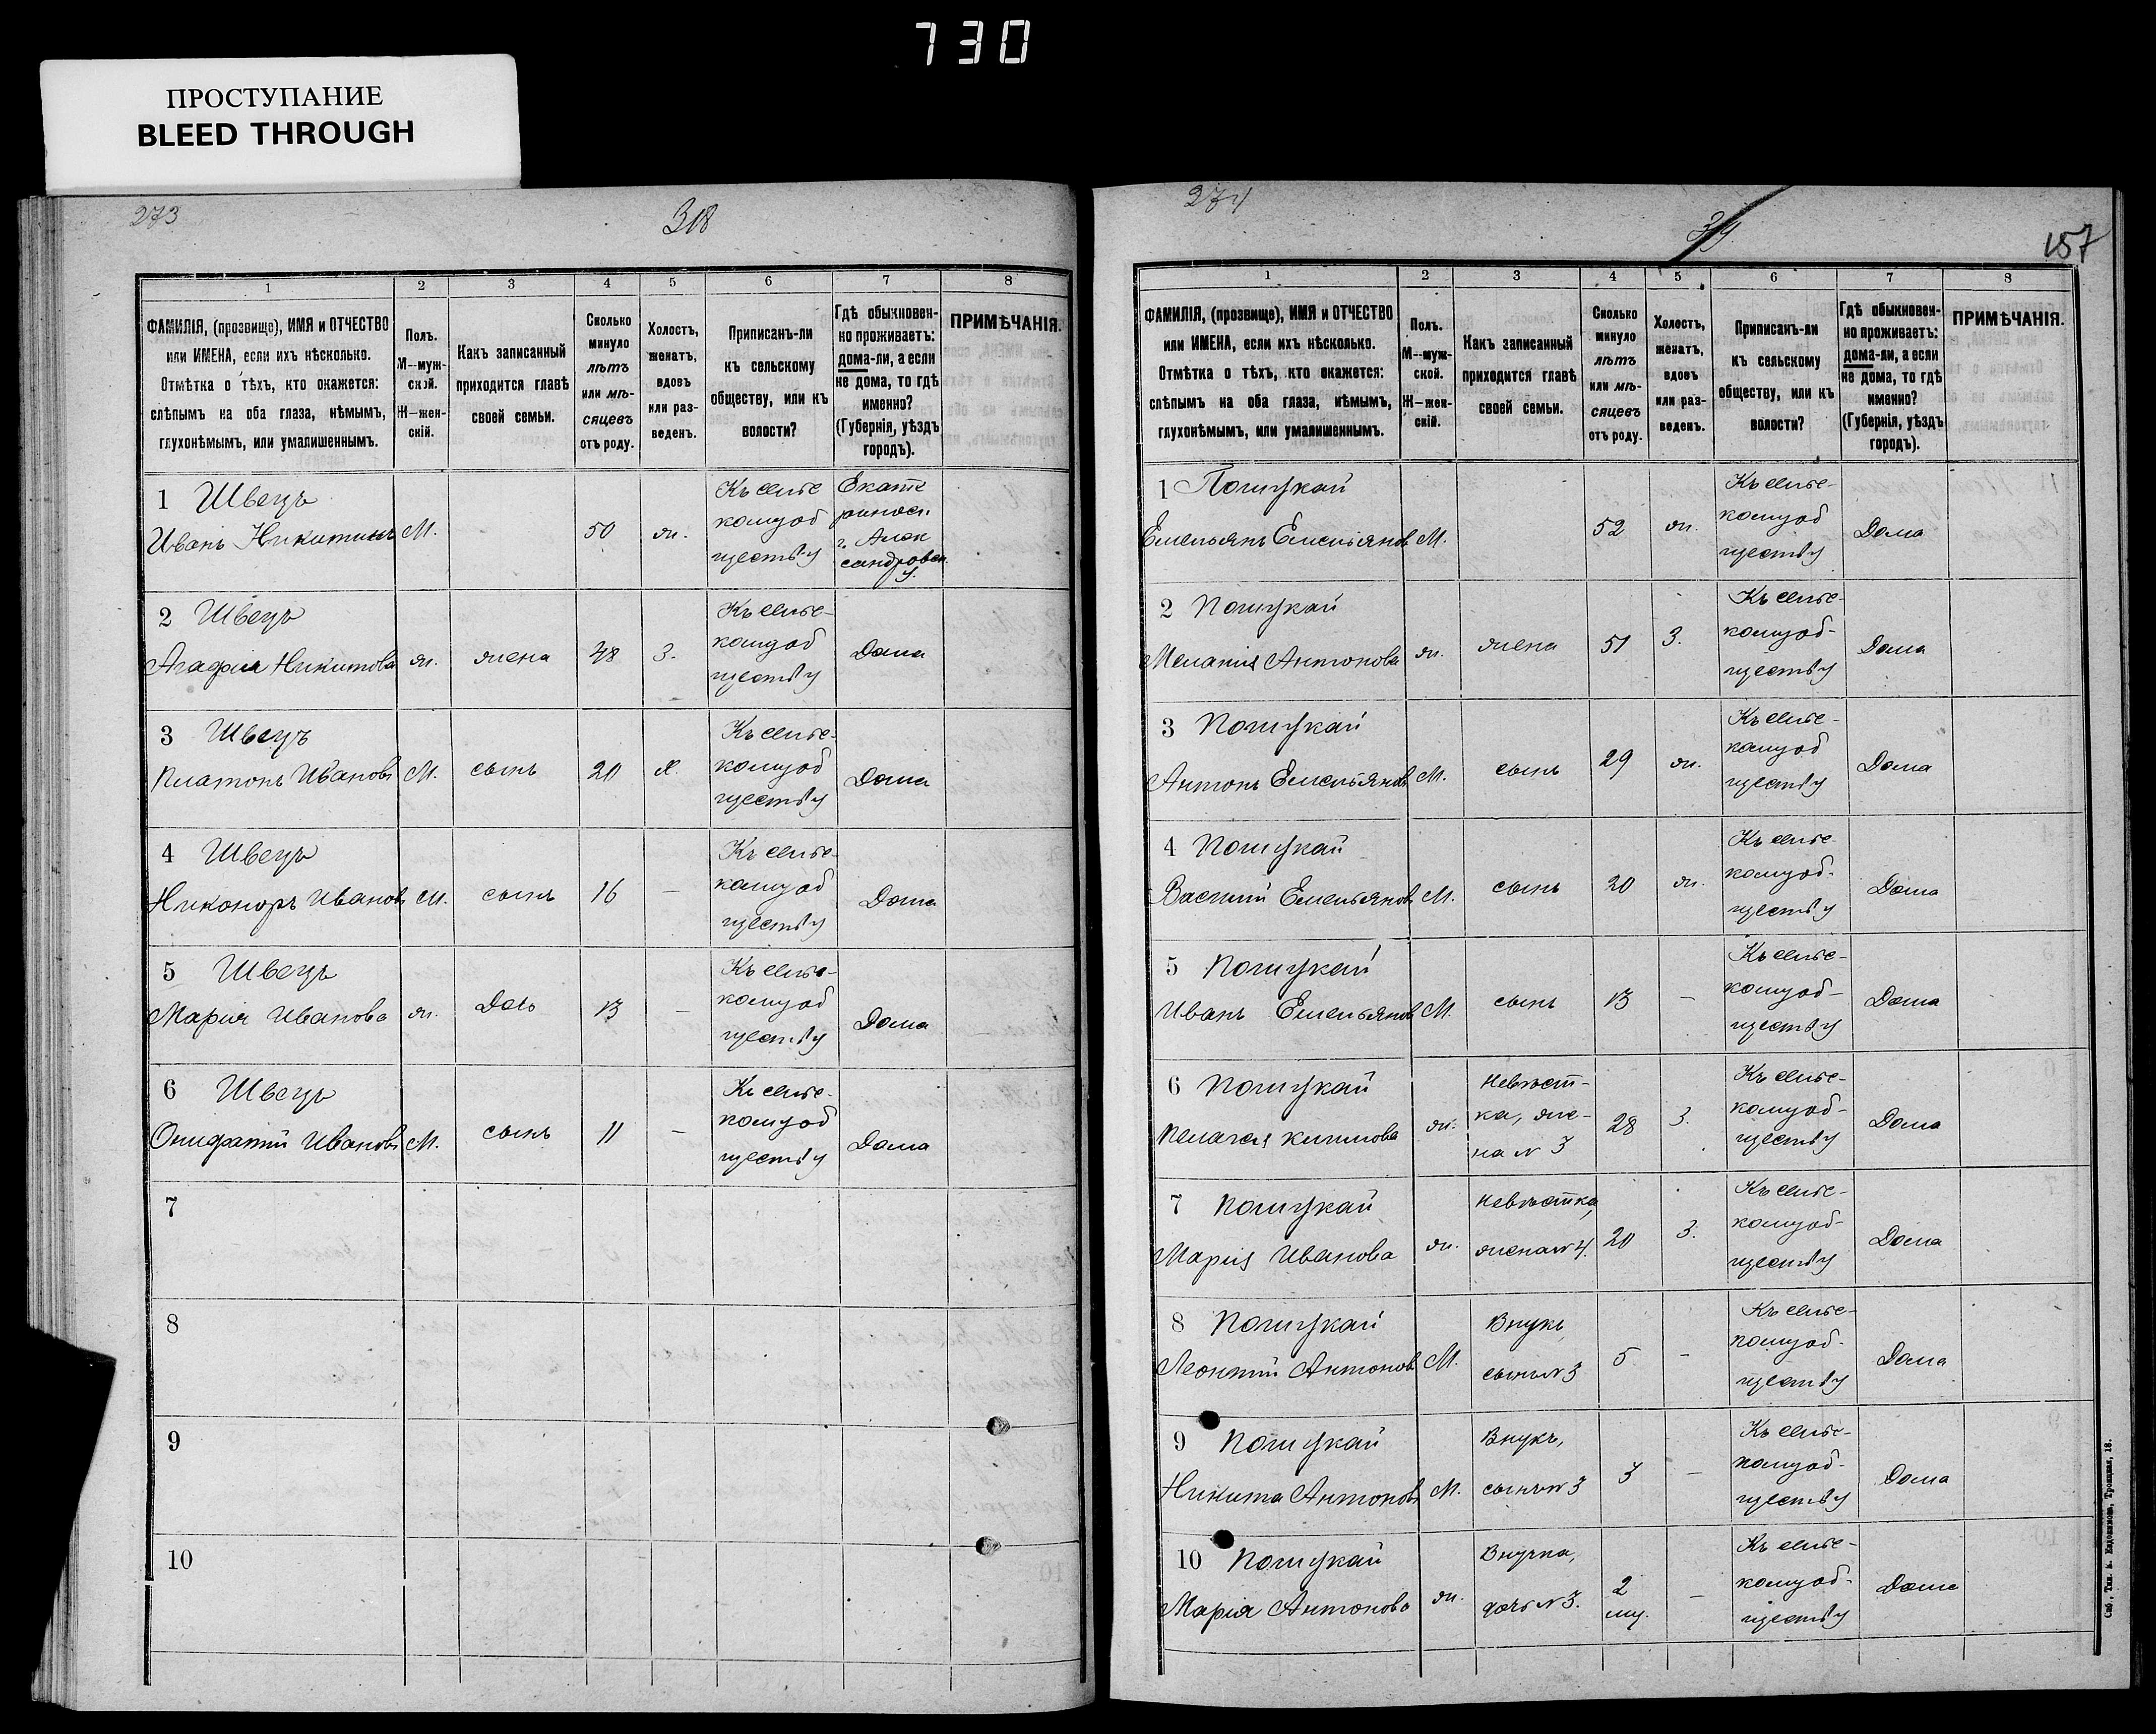 730
ПРОСТУПАНИЕ
BLEED THROUGH
273
318
1 2 3 4 5 6 7 8
ФАМИЛІЯ, (прозвище), ИМЯ и ОТЧЕСТВО
или ИМЕНА, если ихъ нѣсколько.
Отмѣтка о тѣхъ, кто окажется:
слѣпымъ на оба глаза, нѣмымъ,
глухонѣмымъ, или умалишеннымъ.
Полъ.
М--муж-
ской.
Ж--жен-
скій.
Какъ записанный
приходится главѣ
своей семьи.
Сколько
минуло
лѣтъ
или мѣ-
сяцевъ
отъ роду.
Холостъ,
женатъ,
вдовъ
или раз-
веденъ.
Приписанъ-ли
къ сельскому
обществу, или къ
волости?
Гдѣ обыкновен-
но проживаетъ:
дома-ли, а если
не дома, то гдѣ
именно?
(Губернія, уѣздъ
городъ).
ПРИМѢЧАНІЯ.
1 Швецъ
Иванъ Никитинъ М. 50 ж.
Къ сельс
комуоб
ществу
Екате
ринос.
г. Алек
сандровск.
у.
2 Швецъ
Агафия Никитова ж. жена 48 З.
Къ сельс-
комуоб
ществу
Дома
3 Швецъ
Платонъ Ивановъ М. сынъ 20 Х.
Къ сельс-
комуоб
ществу
Дома
4 Швецъ
Никоноръ Ивановъ М. сынъ 16 —
Къ сельс-
комуоб
ществу
Дома
5 Швецъ
Мария Иванова ж. Дочь 13 —
Къ сельс-
комуоб
ществу
Дома
6 Швецъ
Ивановъ М. сынъ 11 —
Къ сельс-
комуоб
ществу
Дома
7
8
9
10
274
319
157
1 2 3 4 5 6 7 8
ФАМИЛІЯ, (прозвище), ИМЯ и ОТЧЕСТВО
или ИМЕНА, если ихъ нѣсколько.
Отмѣтка о тѣхъ, кто окажется:
слѣпымъ на оба глаза, нѣмымъ,
глухонѣмымъ, или умалишеннымъ.
Полъ.
М--муж-
ской.
Ж--жен-
скій.
Какъ записанный
приходится главѣ
своей семьи.
Сколько
минуло
лѣтъ
или мѣ-
сяцевъ
отъ роду.
Холостъ,
женатъ,
вдовъ
или раз-
веденъ.
Приписанъ-ли
къ сельскому
обществу, или къ
волости?
Гдѣ обыкновен-
но проживаетъ:
дома-ли, а если
не дома, то гдѣ
именно?
(Губернія, уѣздъ
городъ).
ПРИМѢЧАНІЯ.
1
Емельянъ Емельянов М. 52 ж.
Къ сельс-
комуоб
ществу
Дома
2
Меланія Антонова ж. жена 51 З.
Къ сельс-
комуоб-
ществу
Дома
3
Антонъ Емельянов М. сынъ 29 ж.
Къ сельс-
комуоб
ществу
Дома
4
Василий Емельянов М. сынъ 20 ж.
Къ сельс-
комуоб-
ществу
Дома
5
Иванъ Емельянов М. сынъ 13 —
Къ сельс-
комуоб-
ществу
Дома
6
Пелагея ж.
Невѣст-
ка, же-
на N 3
28 З.
Къ сельс-
комуоб-
ществу
Дома
7
Марія Иванова ж.
Невѣстка,
жена N 4.
20 З.
Къ сельс-
комуоб-
ществу
Дома
8
Леонтий Антонов М.
Внукъ
сынъ N 3
5 -
Къ сельс-
комуоб-
ществу
Дома
9
Никита Антонов М.
Внукъ,
сынъ N 3
3 —
Къ сельс-
комуоб-
ществу
Дома
10
Мария Антонова ж.
Внучка,
дочь N 3.
2
—
Къ сельс-
комуоб-
ществу
Дома